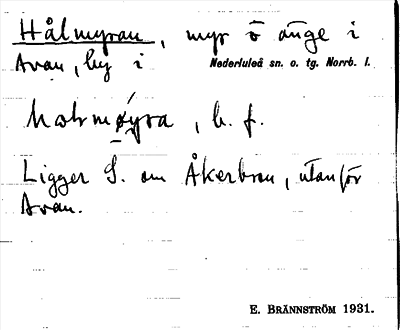 Hålmyran, myr o änge i
Avan, by i Nederluleå sn. o. tg. Norrb. l.
b. f.
Ligger S. om Åkerbron, utanför
Avan.
E. BRÄNNSTRÖM 1931.